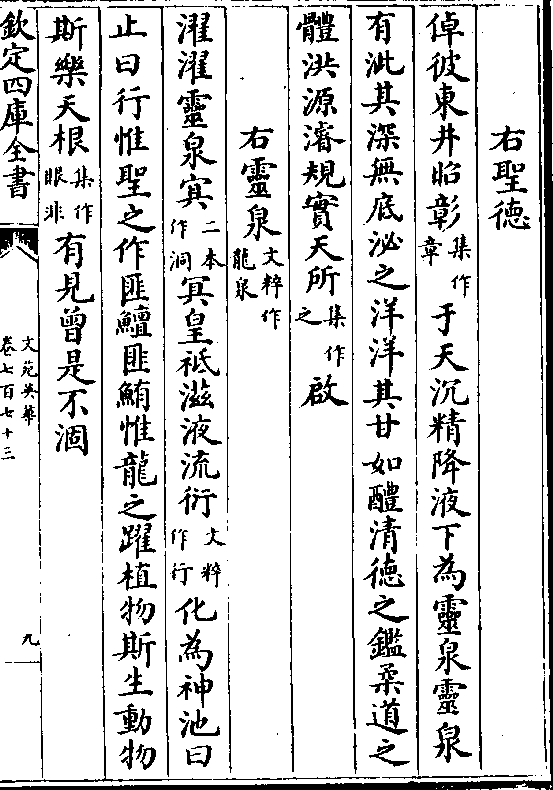 右聖德
倬彼東井昭彰集作章于天沉精降液下為靈泉靈泉
有泚其深無底泌之洋洋其甘如醴清德之鑑柔道之
體洪源濬規實天所集作之啟
右靈泉文粹作龍泉
濯濯靈泉㝠二本作洞㝠皇祇滋液流衍文粹作行化為神池曰
止曰行惟聖之作匪鱣匪鮪惟龍之躍植物斯生動物
斯樂天根集作眼非有見曾是不涸
欽定四庫全書
文苑英華
卷七百七十三
九